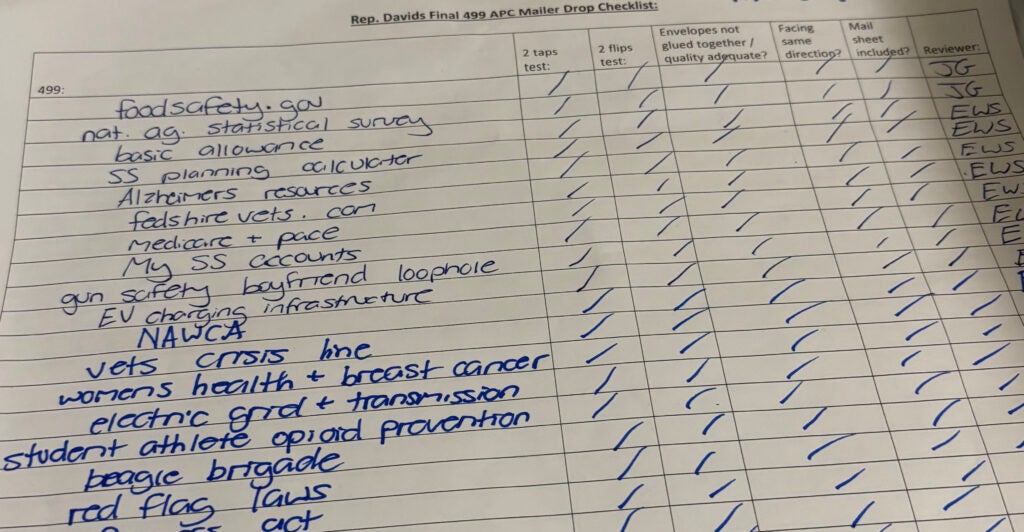 Rep. Davids Final 499 APC Mailer Drop Checklist:
499: 2 taps test: 2 flips test: Envelopes not glued together / quality adequate? Facing same direction? Mail sheet included? Reviewer:
foodsafety.gov / / / / / JG
nat. ag. statistical survey / / / / / JG
basic allowance / / / / / EWS
SS planning calculator / / / / / EWS
Alzheimers resources / / / / / EWS
fedshirevets.com / / / / / EWS
Medicare + pace / / / / / EW
My SS accounts / / / / / E
gun safety boyfriend loophole / / / / / E
EV charging infrastructure / / / / /
NAWCA / / / / /
vets crisis line / / / / /
womens health + breast cancer / / / / /
electric grid + transmission / / / / /
student athlete opioid provention / / / / /
beagle brigade / / / / /
red flag laws / / / / /
act / / / /